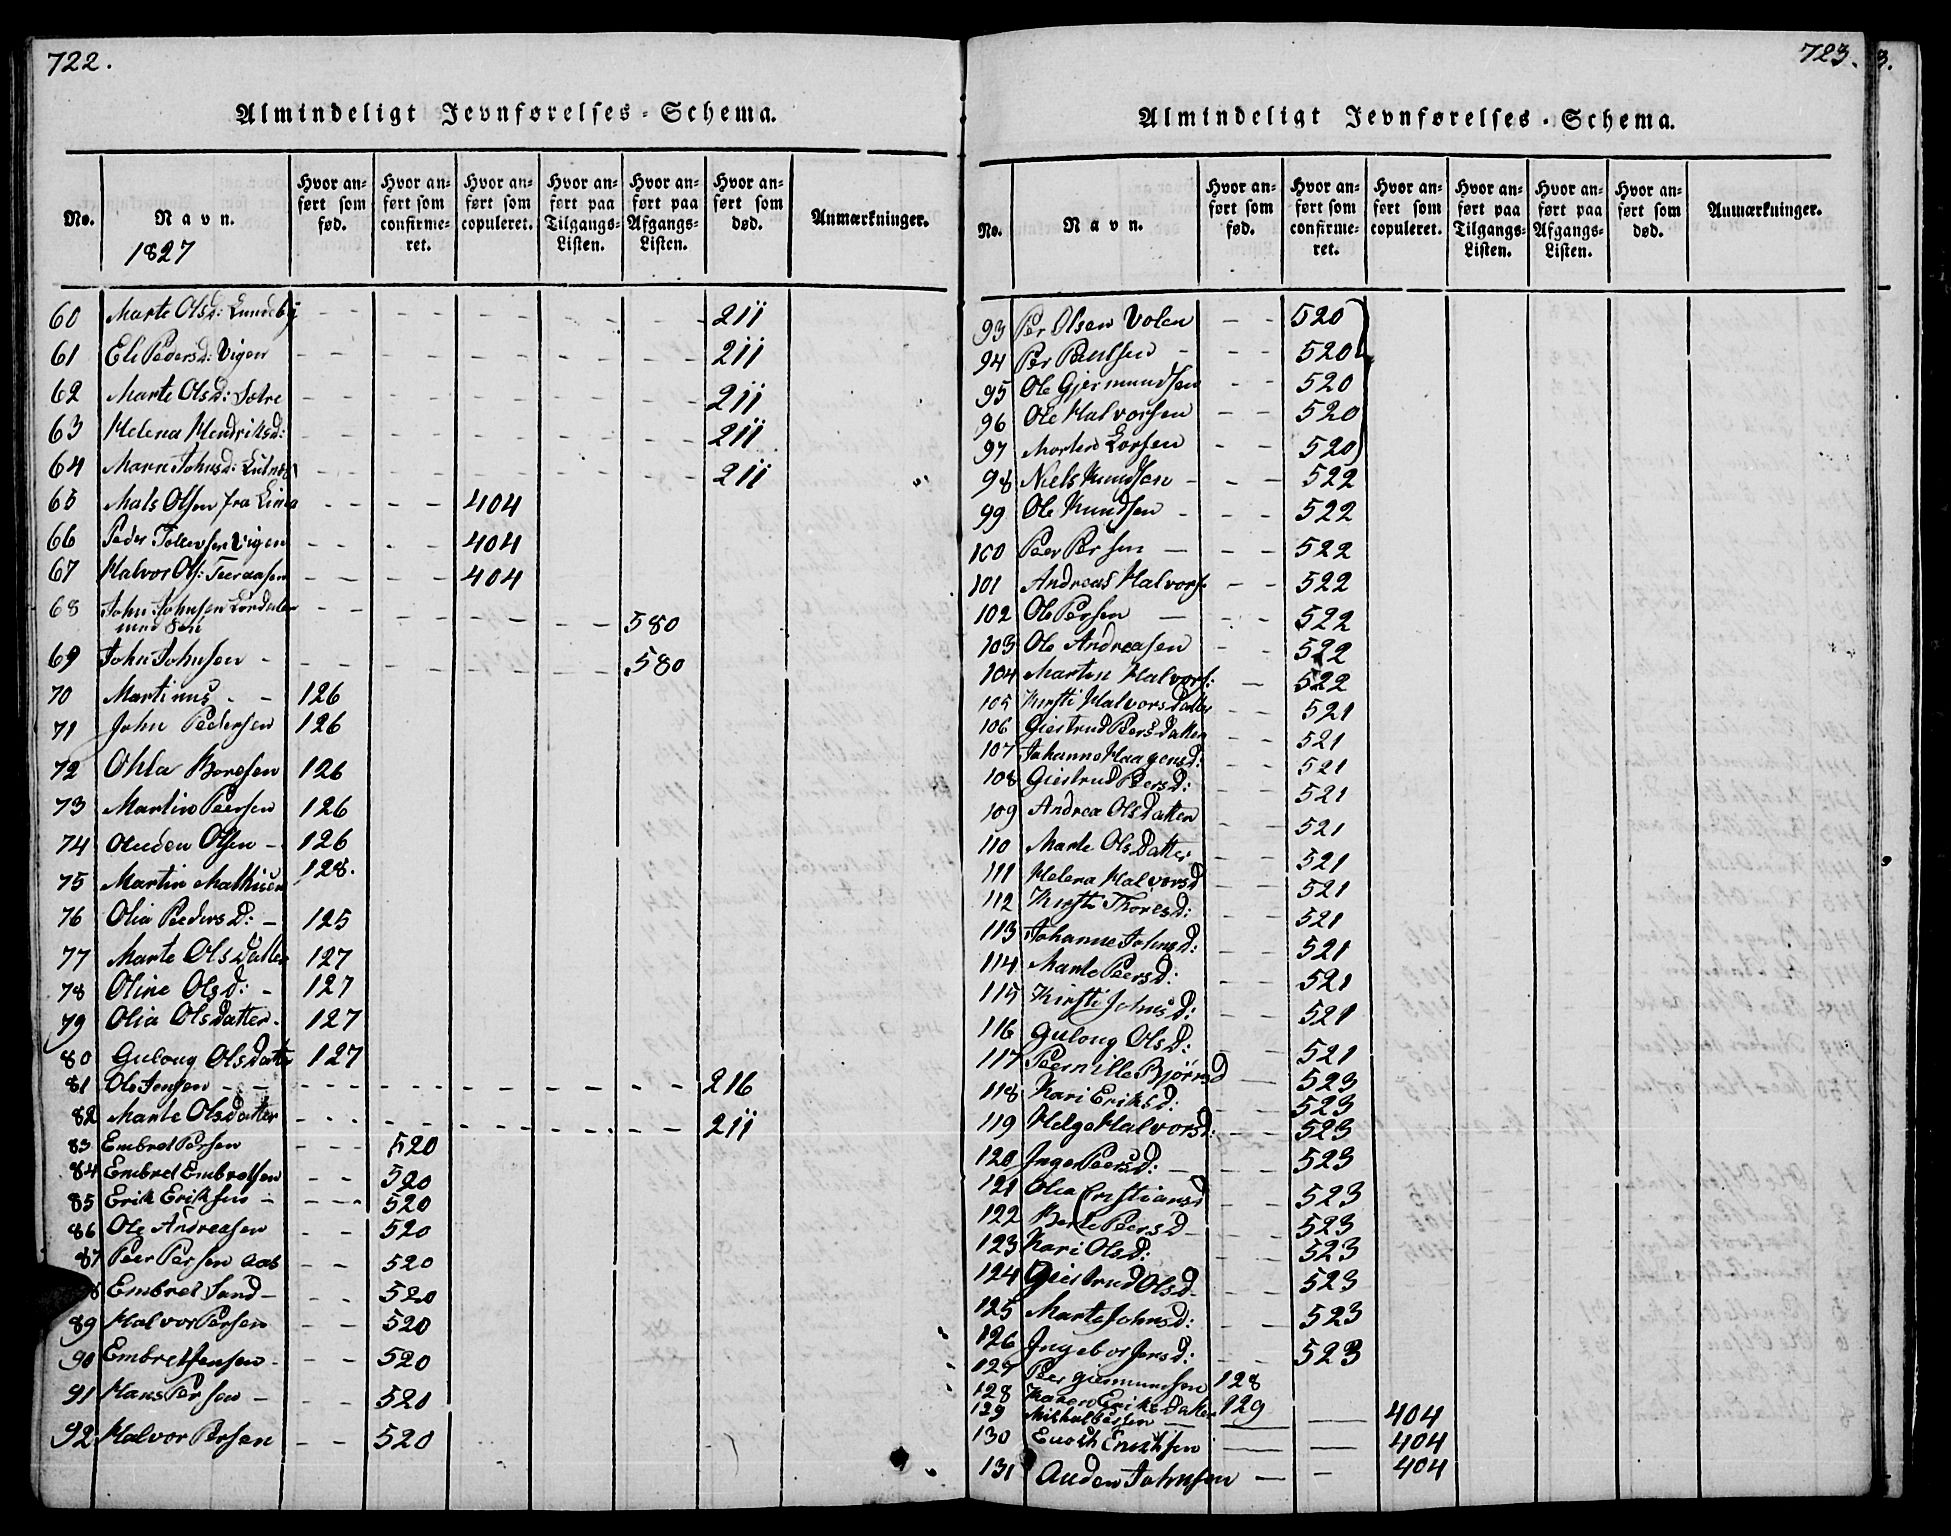 722.
Almindeligt Jevnførelses-Schema.
No.
Navn.
1827
Hvor anført som fød.
Hvor anført som confirmeret.
Hvor anført som copuleret.
Hvor anført paa Tilgangs-Listen.
Hvor anført paa Afgangs-Listen.
Hvor anført som død.
Anmærkninger.
60 Marte Olsd: Lundeby 211
61 Eli Pedersd: Vigen 211
62 Marte Olsd: Sætre 211
63 Helena Hendriksd: 211
64 Maren Johnsd: 211
65 Mats Olsen fra Lima 404
66 Peder Tollevsen Vigen 404
67 Halvor Ols: 404
68 John Johnsen Lørdalen 580
med Søn
69 John Johnsen 580
70 Martinus 126
71 John Pedersen 126
72 Ohla Boresen 126
73 Martin Peersen 126
74 Oluden Olsen 126
75 Martin Mathisen 128.
76 Olia Peders D: 125
77 Marte Olsdatter 127
78 Oline Olsd: 127
79 Olia Olsdatter 127
80 Guloug Olsdatter 127
81 Ole Jensen 216
82 Marte Olsdatter 211
83 Embret Persen 520
84 Embret Embretsen 520
85 Erik Eriksen 520
86 Ole Andreasen 520
87 Peer Persen Aas 520
8 Embret Sand 520
89 Halvor Persen 520
90 Embret Jensen 520
91 Hans Persen 520
92 Halvor Persen 520
723.
3.
Almindeligt Jevnførelses-Schema.
No.
Navn.
Hvor anført som fød.
Hvor anført som confirmeret.
Hvor anført som copuleret.
Hvor anført paa Tilgangs-Listen.
Hvor anført paa Afgangs-Listen.
Hvor anført som død.
Anmærkninger.
93 Per Olsen Volen 520
94 Per Paulsen 520
95 Ole Gjermundsen 520
96 Ole Halvorsen 520
97 Morten Larsen 520
98 Niels Knudsen 522
99 Ole Knudsen 522
100 Peer Persen 522
101 Andreas Halvors: 522
102 Ole Persen 522
103 Ole Andreasen 522
104 Marten Halvors: 522
105 Kirsti Halvorsdatter 521
106 Giertrud Peersdatter 521
107 Johanne Haagensd: 521
108 Giertrud Peersd: 521
109 Andrea Olsdatter 521
110 Marte Olsdatter 521
111 Helena Halvorsd 521
112 Kirsti Thoresd: 521
113 Johanne Johnsd: 521
114 Marte Peersd: 521
115 Kirsti Johnsd: 521
116 Guloug Olsd: 521
117 Peernille Bjørnsd 523
118 Kari Eriksd: 523
119 Helge Halvorsd: 523
120 Inger Peersd: 523
121 Olea Cristiansd 523
122 Berte Peersd 523
123 Kari Olsd: 523
124 Giertrud Olsd 523
125 Marte Johnsd: 523
126 Ingebor Jensd: 523
127 Peer Giermundsen 128
128 Karen Eriksdatter 129
129 Mickel Persen 404
130 Enoch Enochsen 404
131 Auden Johnsen 404